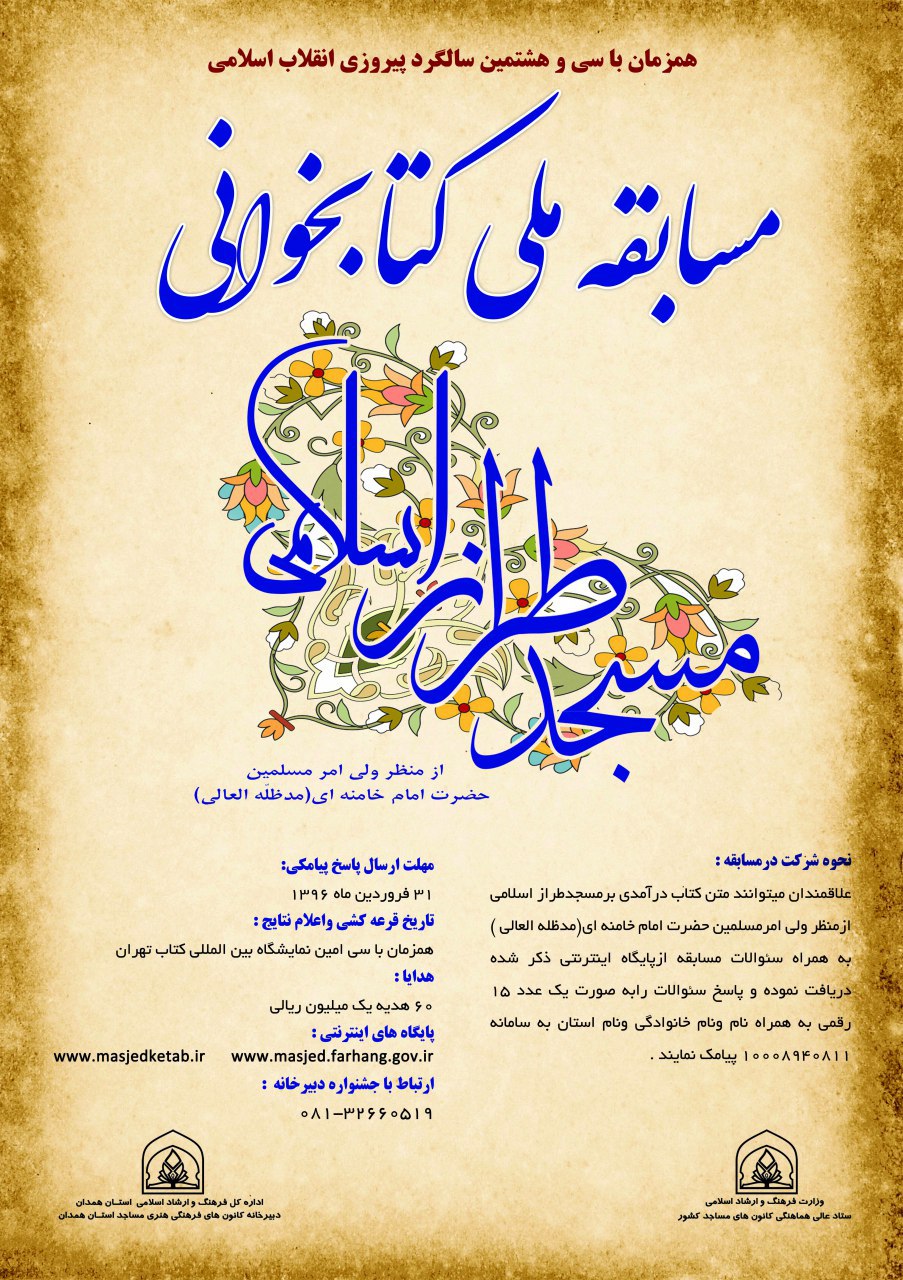 همزمان با سی و هشتمین سالگرد پیروزی انقلاب اسلامی
مسابقه ملی کتابخوانی
مسجد طراز اسلامی
از منظر ولی امر مسلمین
حضرت امام خامنه ای(مدظله العالی)
نحوه شرکت درمسابقه :
علاقمندان میتوانند متن کتاب درآمدی برمسجدطراز اسلامی
ازمنظر ولی امرمسلمین حضرت امام خامنه ای(مدظله العالی )
به همراه سئوالات مسابقه ازپایگاه اینترنتی ذکر شده
دریافت نموده و پاسخ سئوالات رابه صورت یک عدد ۱۵
رقمی به همراه نام ونام خانوادگی ونام استان به سامانه
۱۰۰۰۸۹۴۰۸۱۱ پیامک نمایند .
مهلت ارسال پاسخ پیامکی:
۳۱ فروردین ماه ۱۳۹۶
تاریخ قرعه کشی واعلام نتایج :
همزمان با سی امین نمایشگاه بین المللی کتاب تهران
هدایا :
۶۰ هدیه یک میلیون ریالی
پایگاه های اینترنتی :
www.masjedketab.ir www.masjed.farhang.gov.ir
ارتباط با جشنواره دبیرخانه :
۰۸۱-۳۲۶۶۰۵۱۹
وزارت فرهنگ و ارشاد اسلامی
ستاد عالی هماهنگی کانون های مساجد کشور
اداره کل فرهنگ و ارشاد اسلامی استان همدان
دبیرخانه کانون های فرهنگی هنری مساجد استان همدان